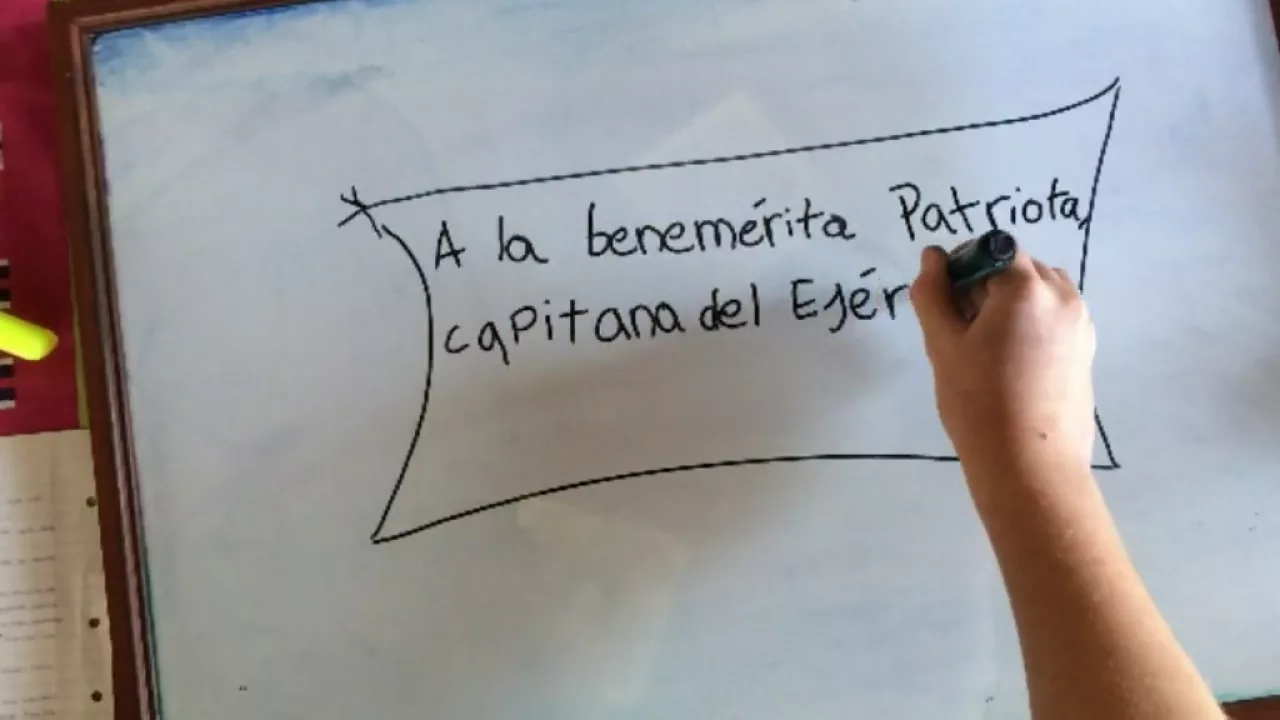 A la benemérita Patriota,
capitana del Ejér